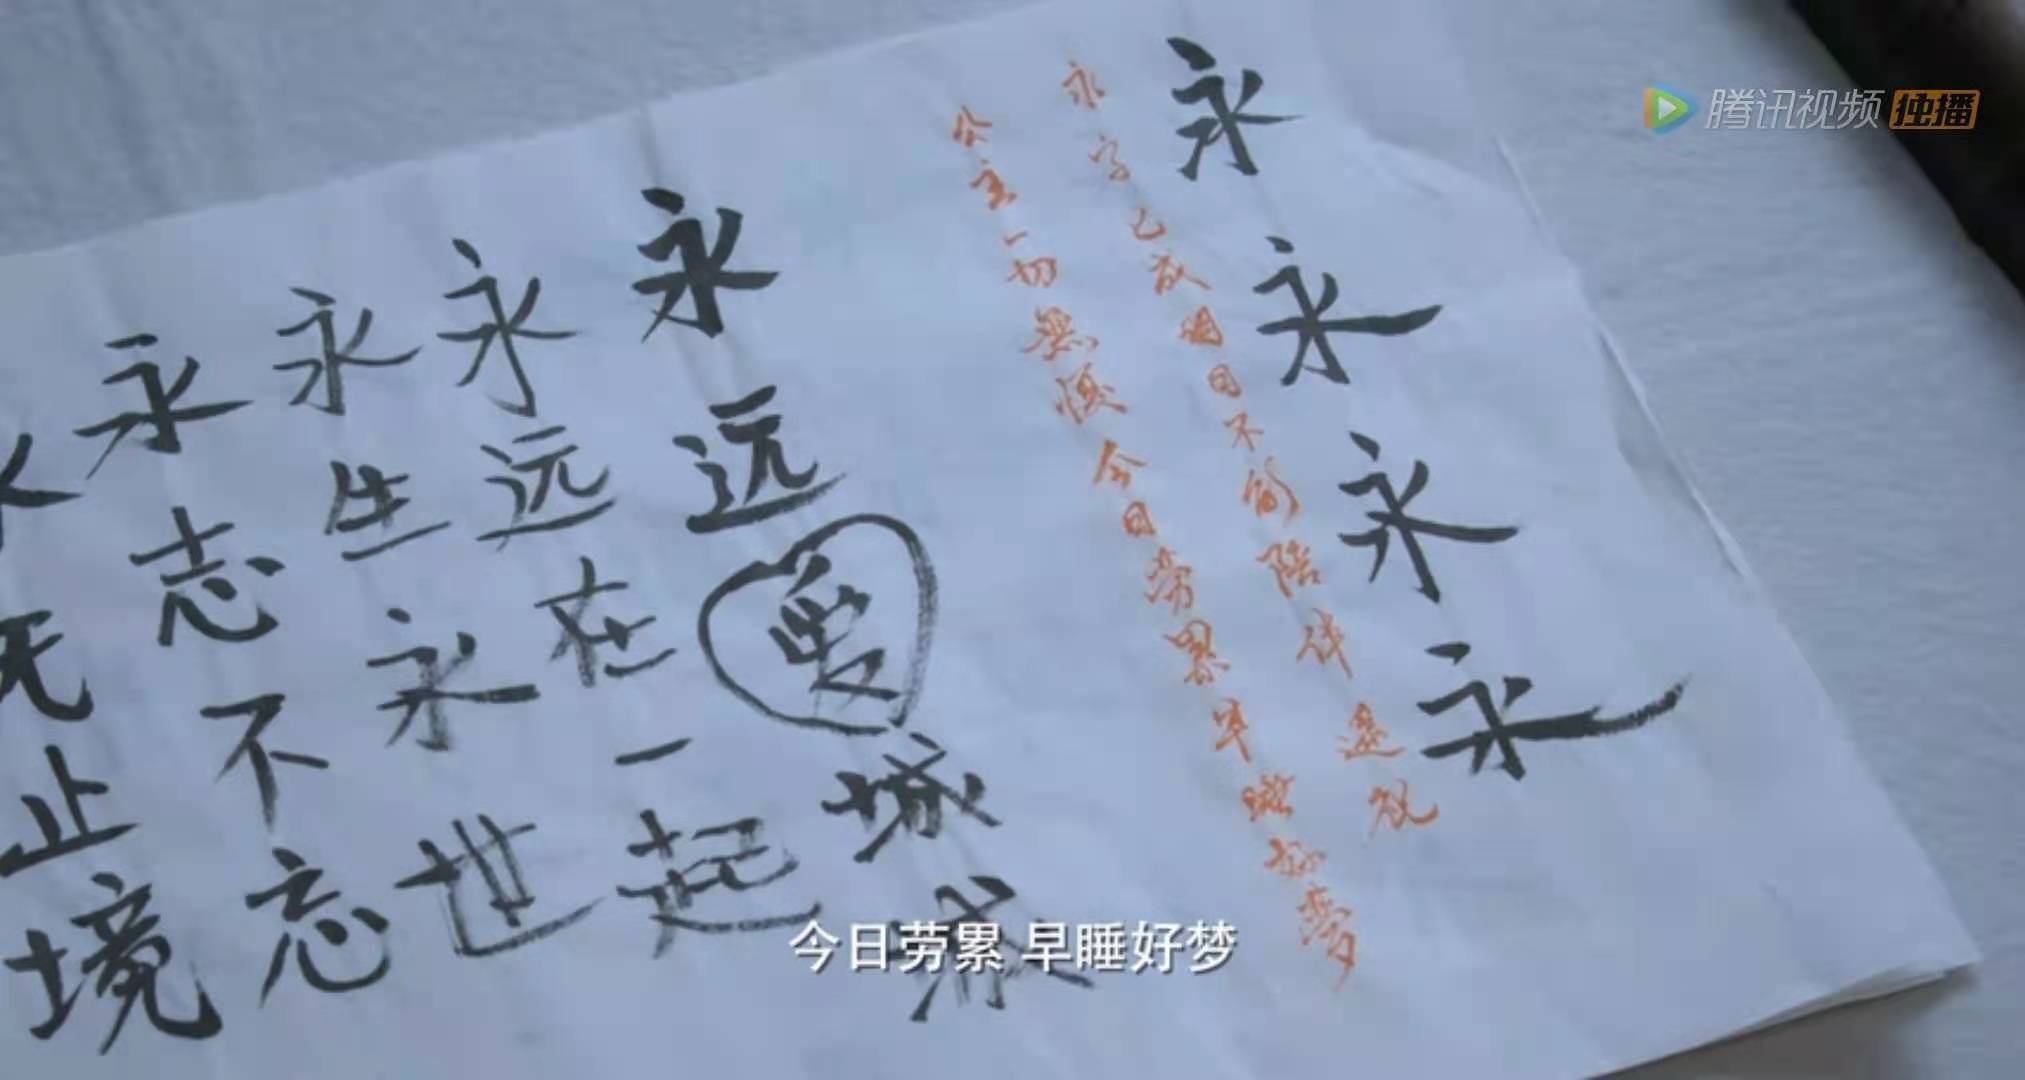 腾讯视频 独播
永永永永
永字已成明日不能陪伴遥祝
公主一切無憂今日劳累早睡好夢
永远愛城城
永远在一起
永生永世
永志不忘
永无止境
今日劳累 早睡好梦